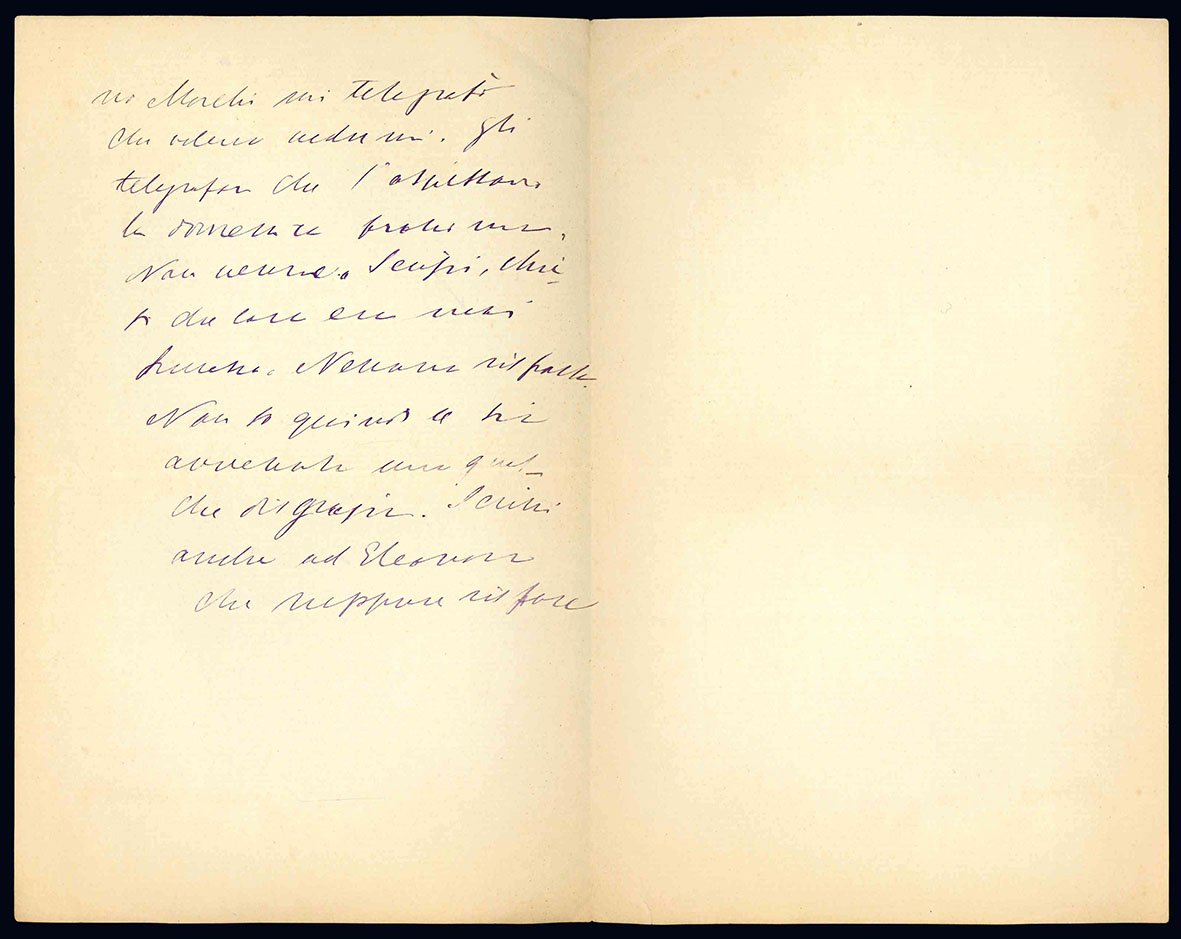 mi telegrafò
che voleva vedermi. Gli
telegrafai che l'aspettavo
la domenica prossima.
Non venne. Scrissi, chie-
si che cosa era mai
successo. Nessuna risposta.
Non so quindi se sia
avvenuta una qual-
che disgrazia. Scrissi
anche ad Eleonora
che neppure rispose